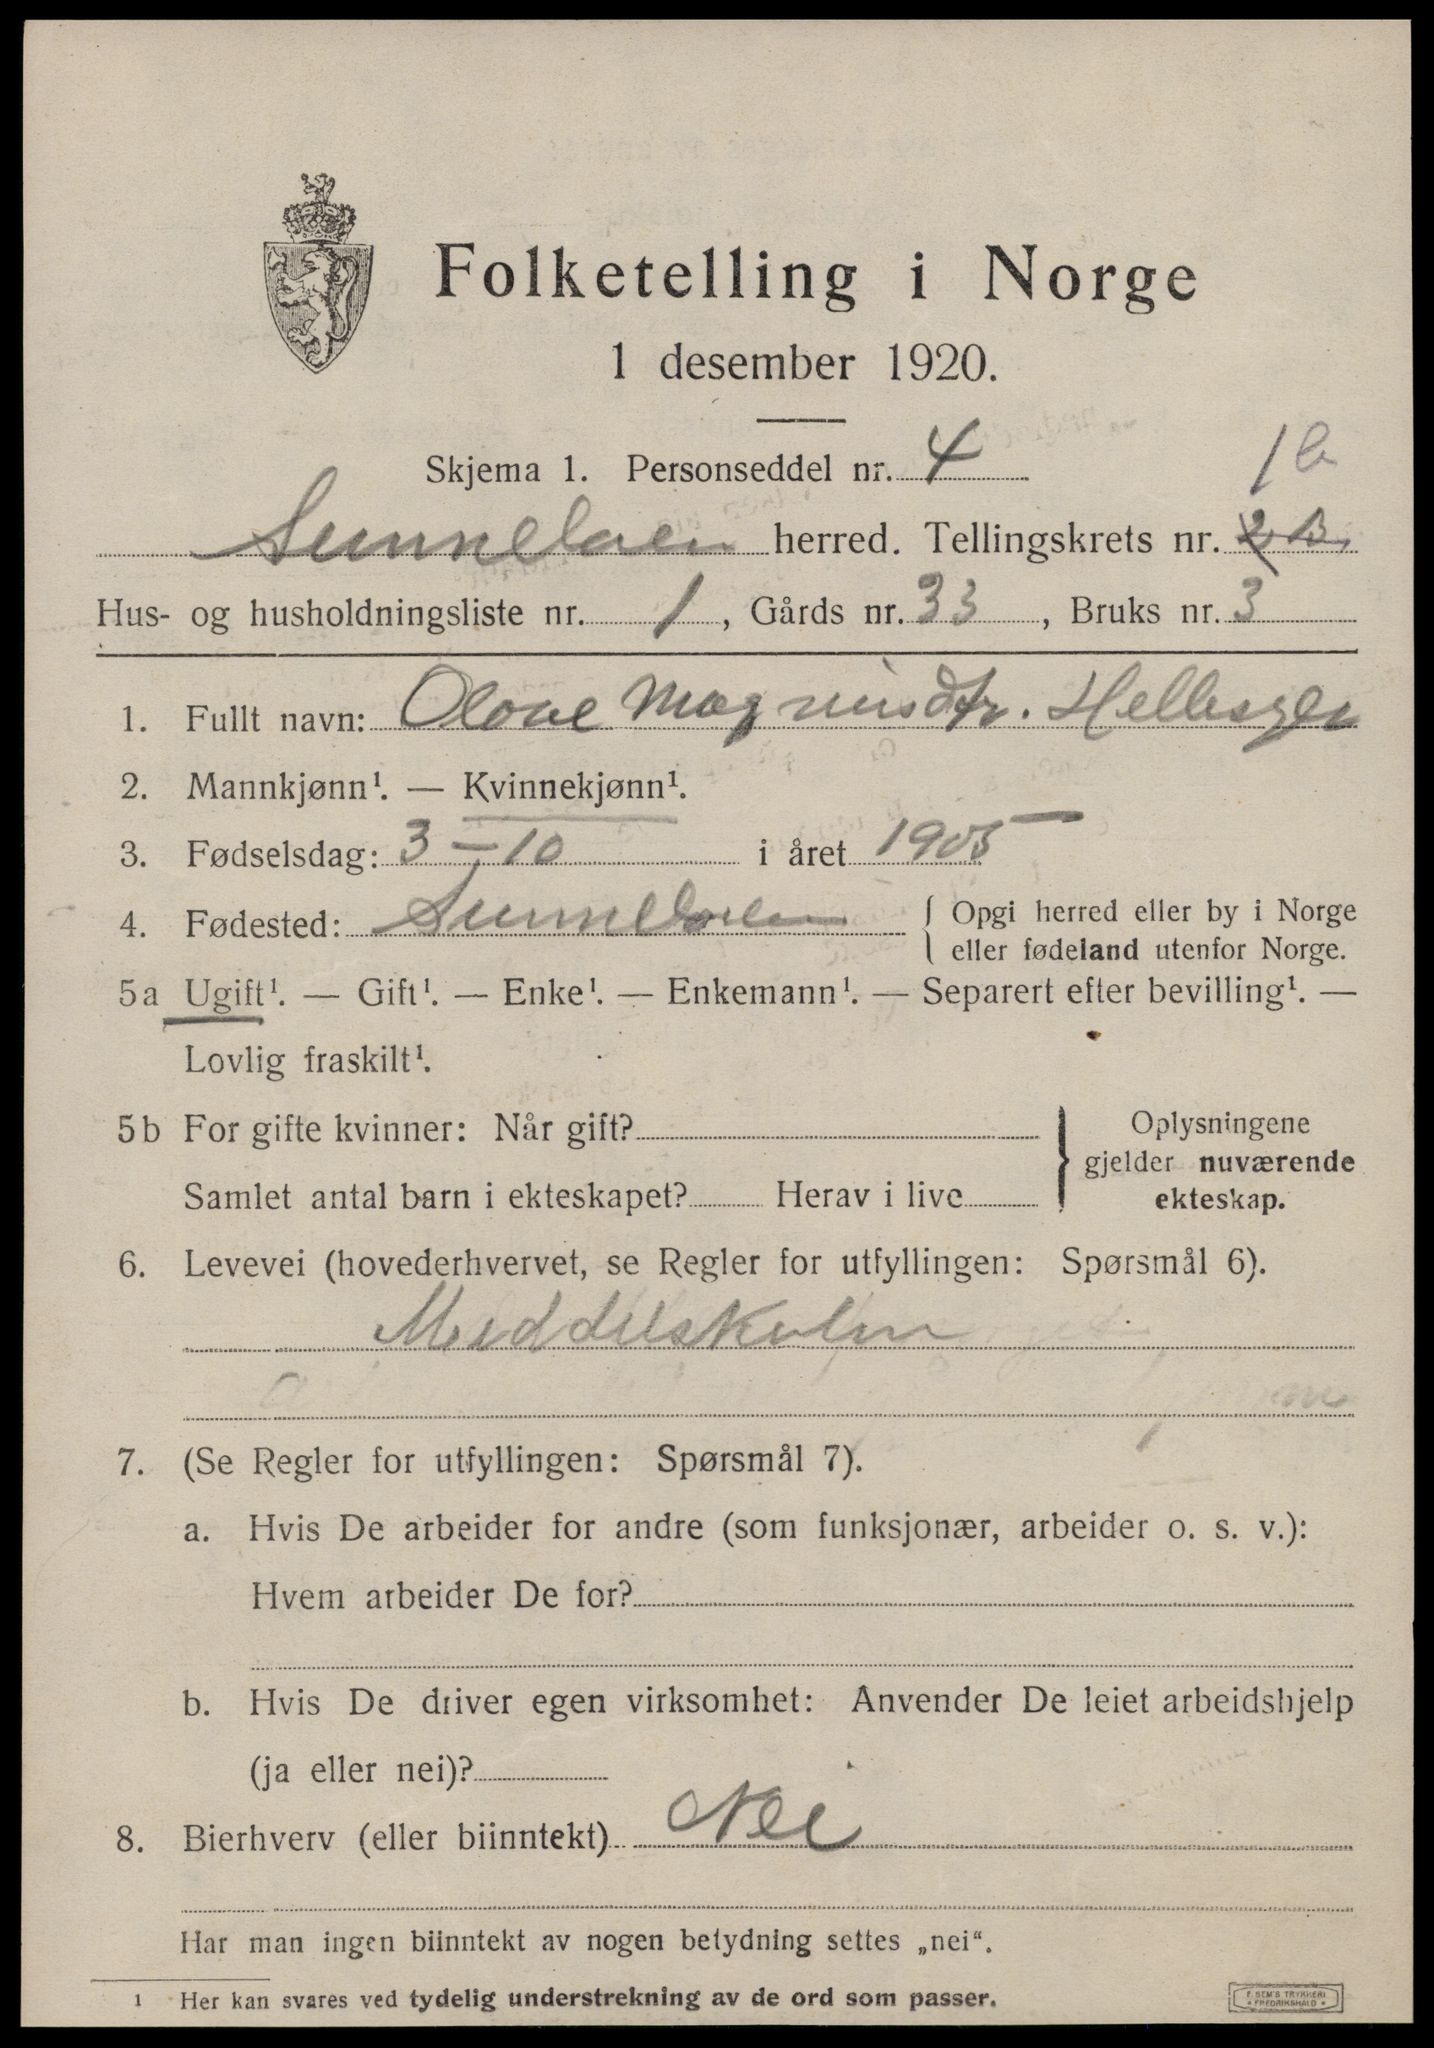 Folketelling i Norge
1 desember 1920.
Skjema 1. Personseddel nr. 4
1b
Sunnelven herred. Tellingskrets nr. 2B.
Hus- og husholdningsliste nr. 1, Gårds nr. 33, Bruks nr. 3
1. Fullt navn: Olave Magnusdtr.
2. Mannkjønn¹. — Kvinnekjønn¹.
3. Fødselsdag: 3 – 10 i året 1905
4. Fødested: Sunnelven { Opgi herred eller by i Norge
eller fødeland utenfor Norge.
5a Ugift¹. — Gift¹. — Enke¹. — Enkemann¹. — Separert efter bevilling¹. —
Lovlig fraskilt¹.
5b For gifte kvinner: Når gift?
Samlet antal barn i ekteskapet? Herav i live
} Oplysningene
gjelder nuværende
ekteskap.
6. Levevei (hovederhvervet, se Regler for utfyllingen: Spørsmål 6).
Middelskolen
7. (Se Regler for utfyllingen: Spørsmål 7).
a. Hvis De arbeider for andre (som funksjonær, arbeider o. s. v.):
Hvem arbeider De for?
b. Hvis De driver egen virksomhet: Anvender De leiet arbeidshjelp
(ja eller nei)?
8. Bierhverv (eller biinntekt) Nei
Har man ingen biinntekt av nogen betydning settes „nei“.
1 Her kan svares ved tydelig understrekning av de ord som passer.
F. SEM'S TRYKKERI
* FREDRIKSHALD *